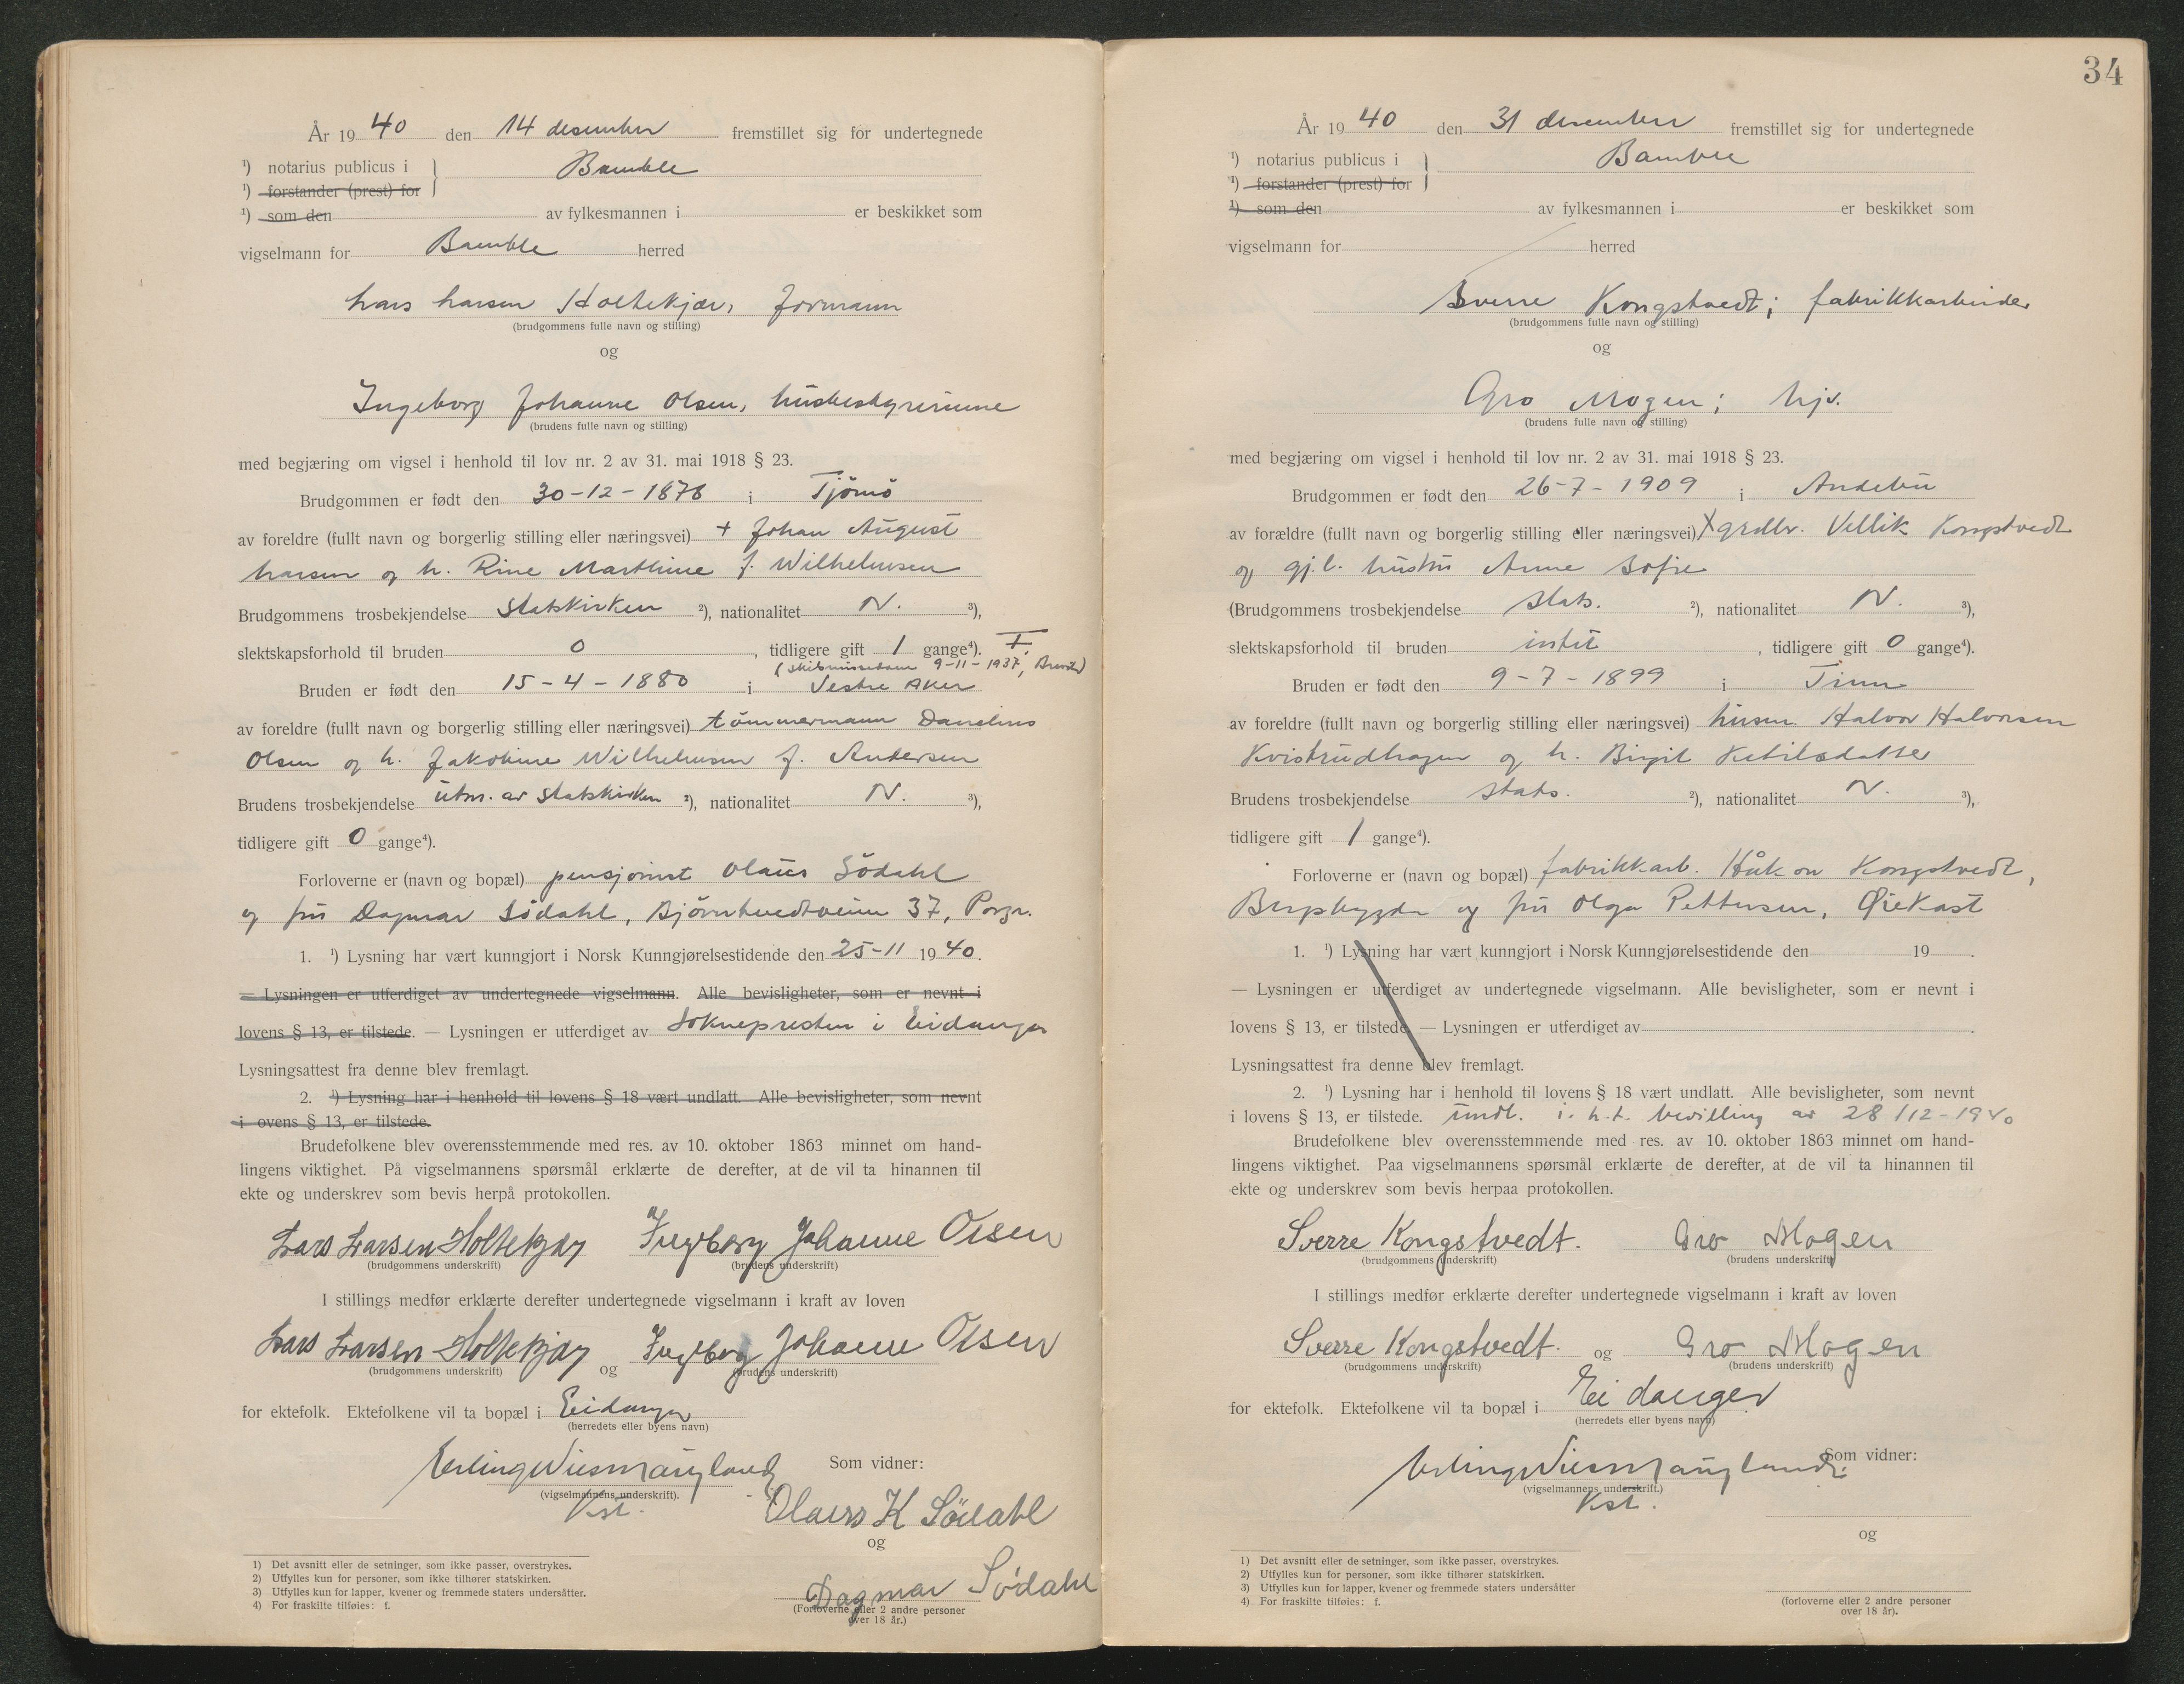 År 1940 den 14 desember fremstillet sig for undertegnede
¹) notarius publicus i } Bamble
¹) forstander (prest) for
¹) som den av fylkesmannen i er beskikket som
vigselmann for Bamble herred
Lars Larsen Holtekjær, formann
(brudgommens fulle navn og stilling)
og
Ingeborg Johanne Olsen, husbestyrerinne
(brudens fulle navn og stilling)
med begjæring om vigsel i henhold til lov nr. 2 av 31. mai 1918 § 23.
Brudgommen er født den 30-12-1878 i Tjömö
av foreldre (fullt navn og borgerlig stilling eller næringsvei) + Johan August
Larsen og h. Rine Marthine f. Wilhelmsen
Brudgommens trosbekjendelse Statskirken ²), nationalitet N. ³),
slektskapsforhold til bruden 0, tidligere gift 1 gange⁴).
9-11-1937, Brevik)
Bruden er født den 15-4-1880 i Vestre Aker
av foreldre (fullt navn og borgerlig stilling eller næringsvei) tömmermann Danelius
Olsen og h. Jakobine Wilhelmsen f. Andersen
Brudens trosbekjendelse utm. av Statskirken ²), nationalitet N. ³),
tidligere gift 0 gange⁴).
Forloverne er (navn og bopæl) pensjonist Olaus Södahl
og fru Dagmar Södahl, Bjørntvedtveien 37, Porgr.
1. ¹) Lysning har vært kunngjort i Norsk Kunngjørelsestidende den 25-11 1940.
— Lysningen er utferdiget av undertegnede vigselmann. Alle bevisligheter, som er nevnt i
lovens § 13, er tilstede. — Lysningen er utferdiget av Soknepresten i Eidanger
Lysningsattest fra denne blev fremlagt.
2. ¹) Lysning har i henhold til lovens § 18 vært undlatt. Alle bevisligheter, som nevnt
i ovens § 13, er tilstede.
Brudefolkene blev overensstemmende med res. av 10. oktober 1863 minnet om hand-
lingens viktighet. På vigselmannens spørsmål erklærte de derefter, at de vil ta hinannen til
ekte og underskrev som bevis herpå protokollen.
Lars Larsen Holtekjær Ingeborg Johanne Olsen
(brudgommens underskrift) (brudens underskrift)
I stillings medfør erklærte derefter undertegnede vigselmann i kraft av loven
Lars Larsen Holtekjær og Ingeborg Johanne Olsen
(brudgommens underskrift) (brudens underskrift)
for ektefolk. Ektefolkene vil ta bopæl i Eidanger
(herredets eller byens navn)
Som vidner:
(vigselmannens underskrift).
Kst.
Olaus K Södahl
og
Dagmar Södahl
(Forloverne eller 2 andre personer
over 18 år.)
1) Det avsnitt eller de setninger, som ikke passer, overstrykes.
2) Utfylles kun for personer, som ikke tilhører statskirken.
3) Utfylles kun for lapper, kvener og fremmede staters undersåtter.
4) For fraskilte tilføies: f.
34
År 1940 den 31 desember fremstillet sig for undertegnede
¹) notarius publicus i } Bamble
¹) forstander (prest) for
¹) som den av fylkesmannen i er beskikket som
vigselmann for herred
Sverre Kongstvedt; fabrikkarbeider
(brudgommens fulle navn og stilling)
og
Gro Mogen; hjv.
(brudens fulle navn og stilling)
med begjæring om vigsel i henhold til lov nr. 2 av 31. mai 1918 § 23.
Brudgommen er født den 26-7-1909 i Andebu
av forældre (fullt navn og borgerlig stilling eller næringsvei) grdbr. Vellik Kongstvedt
og gj.l. hustru Anne Sofie
(Brudgommens trosbekjendelse stats. ²), nationalitet N. ³),
slektskapsforhold til bruden intet, tidligere gift 0 gange⁴).
Bruden er født den 9-7-1899 i Tinn
av foreldre (fullt navn og borgerlig stilling eller næringsvei) husm. Halvor Halvorsen
Kvistrudhagen og h. Birgit Ketilsdatter
Brudens trosbekjendelse stats. ²), nationalitet N. ³),
tidligere gift 1 gange⁴).
Forloverne er (navn og bopæl) fabrikkarb. Håkon Kongstvedt,
Bergsbygda og fru Olga Pettersen, Øiekast
1. ¹) Lysning har vært kunngjort i Norsk Kunngjørelsestidende den 19 .
— Lysningen er utferdiget av undertegnede vigselmann. Alle bevisligheter, som er nevnt i
lovens § 13, er tilstede. — Lysningen er utferdiget av .
Lysningsattest fra denne blev fremlagt.
2. ¹) Lysning har i henhold til lovens § 18 vært undlatt. Alle bevisligheter, som nevnt
i lovens § 13, er tilstede. undl. i. h. t. bevilling av 28/12-1940
Brudefolkene blev overensstemmende med res. av 10. oktober 1863 minnet om hand-
lingens viktighet. Paa vigselmannens spørsmål erklærte de derefter, at de vil ta hinannen til
ekte og underskrev som bevis herpaa protokollen.
Sverre Kongstvedt. Gro Mogen
(brudgommens underskrift) (brudens underskrift)
I stillings medfør erklærte derefter undertegnede vigselmann i kraft av loven
Sverre Kongstvedt. og Gro Mogen
(brudgommens underskrift) (brudens underskrift)
for ektefolk. Ektefolkene vil ta bopæl i Eidanger
(herredets eller byens navn)
Som vidner:
(vigselmannens underskrift.)
Kst.
og
(forloverne eller 2 andre personer
over 18 år).
1) Det avsnitt eller de setninger, som ikke passer, overstrykes.
2) Utfylles kun for personer, som ikke tilhører statskirken.
3) Utfylles kun for lapper, kvener og fremmede staters undersåtter
4) For fraskilte tilføies: f.